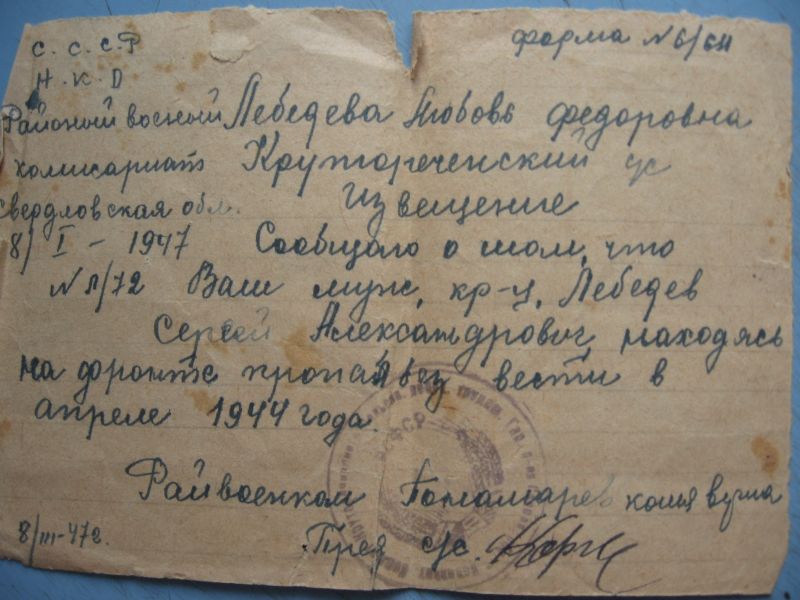 С.С.С.Р форма №6/611
Н.К.О
Районый военый Лебедева Любовь Федоровна
комисариат Крутореченский с/с
Свердловская обл. Извещение
8/I - 1947 Сообщаю о том, что
№ Л/72 Ваш муж, кр-ц, Лебедев
Сергей Александрович, находясь
на фронте пропал без вести в
апреле 1944 года.
Райвоенком Пономарев копия верна
8/III-47г. Пред с/с.
РСФСР